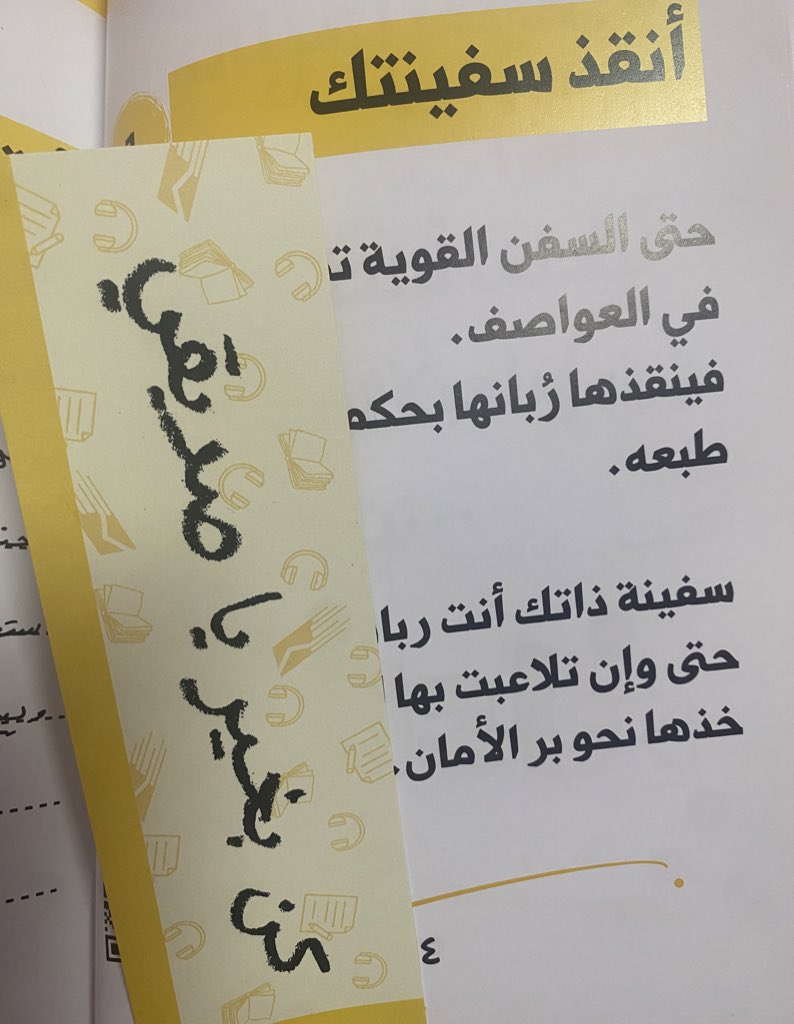 أنقذ سفينتك
حتى السفن القوية
في العواصف.
فينقذها رُبانها
طبعه.
سفينة ذاتك أنت
حتى وإن تلاعبت بها
خذها نحو بر الأمان.
٤
كن بخير يا صديقي